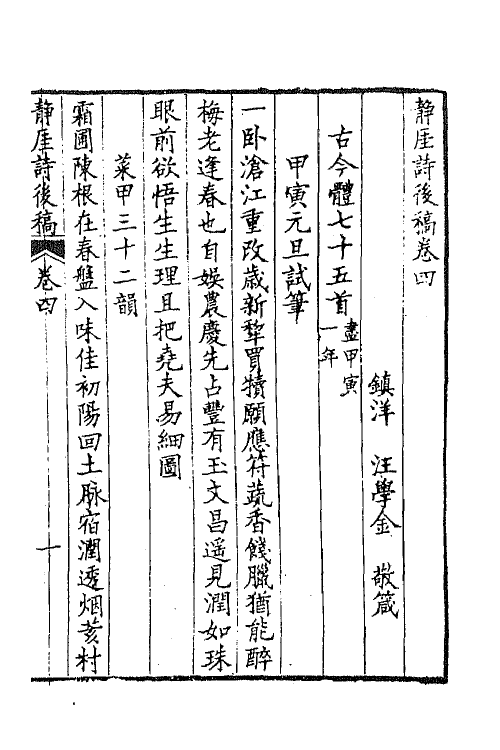 靜厓詩後稿卷四
鎮洋 汪學金 敬箴
古今體七十五首盡甲寅一年
甲寅元旦試筆
一卧滄江重改歲新犂買犢願應符蔬香餞臘猶能醉
梅老逢春也自娛農慶先占豐有玉文昌遥見潤如珠
眼前欲悟生生理且把堯夫易細圖
菜甲三十二韻
霜圃陳根在春盤入味佳初陽回土脉宿潤透烟荄村
靜厓詩後稿 卷四 一